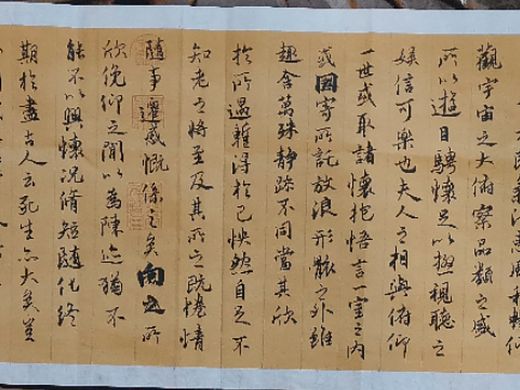 氣清惠風和暢仰
觀宇宙之大俯察品類之盛
所以遊目騁懷足以極視聽之
娛信可樂也夫人之相與俯仰
一世或取諸懷抱悟言一室之內
或因寄所託放浪形骸之外雖
趣舍萬殊靜躁不同當其欣
於所遇暫得於己怏然自足不
知老之將至及其所之既惓情
隨事遷感慨係之矣向之所
欣俛仰之閒以為陳迹猶不
能不以興懷況脩短隨化終
期於盡古人云死生亦大矣豈